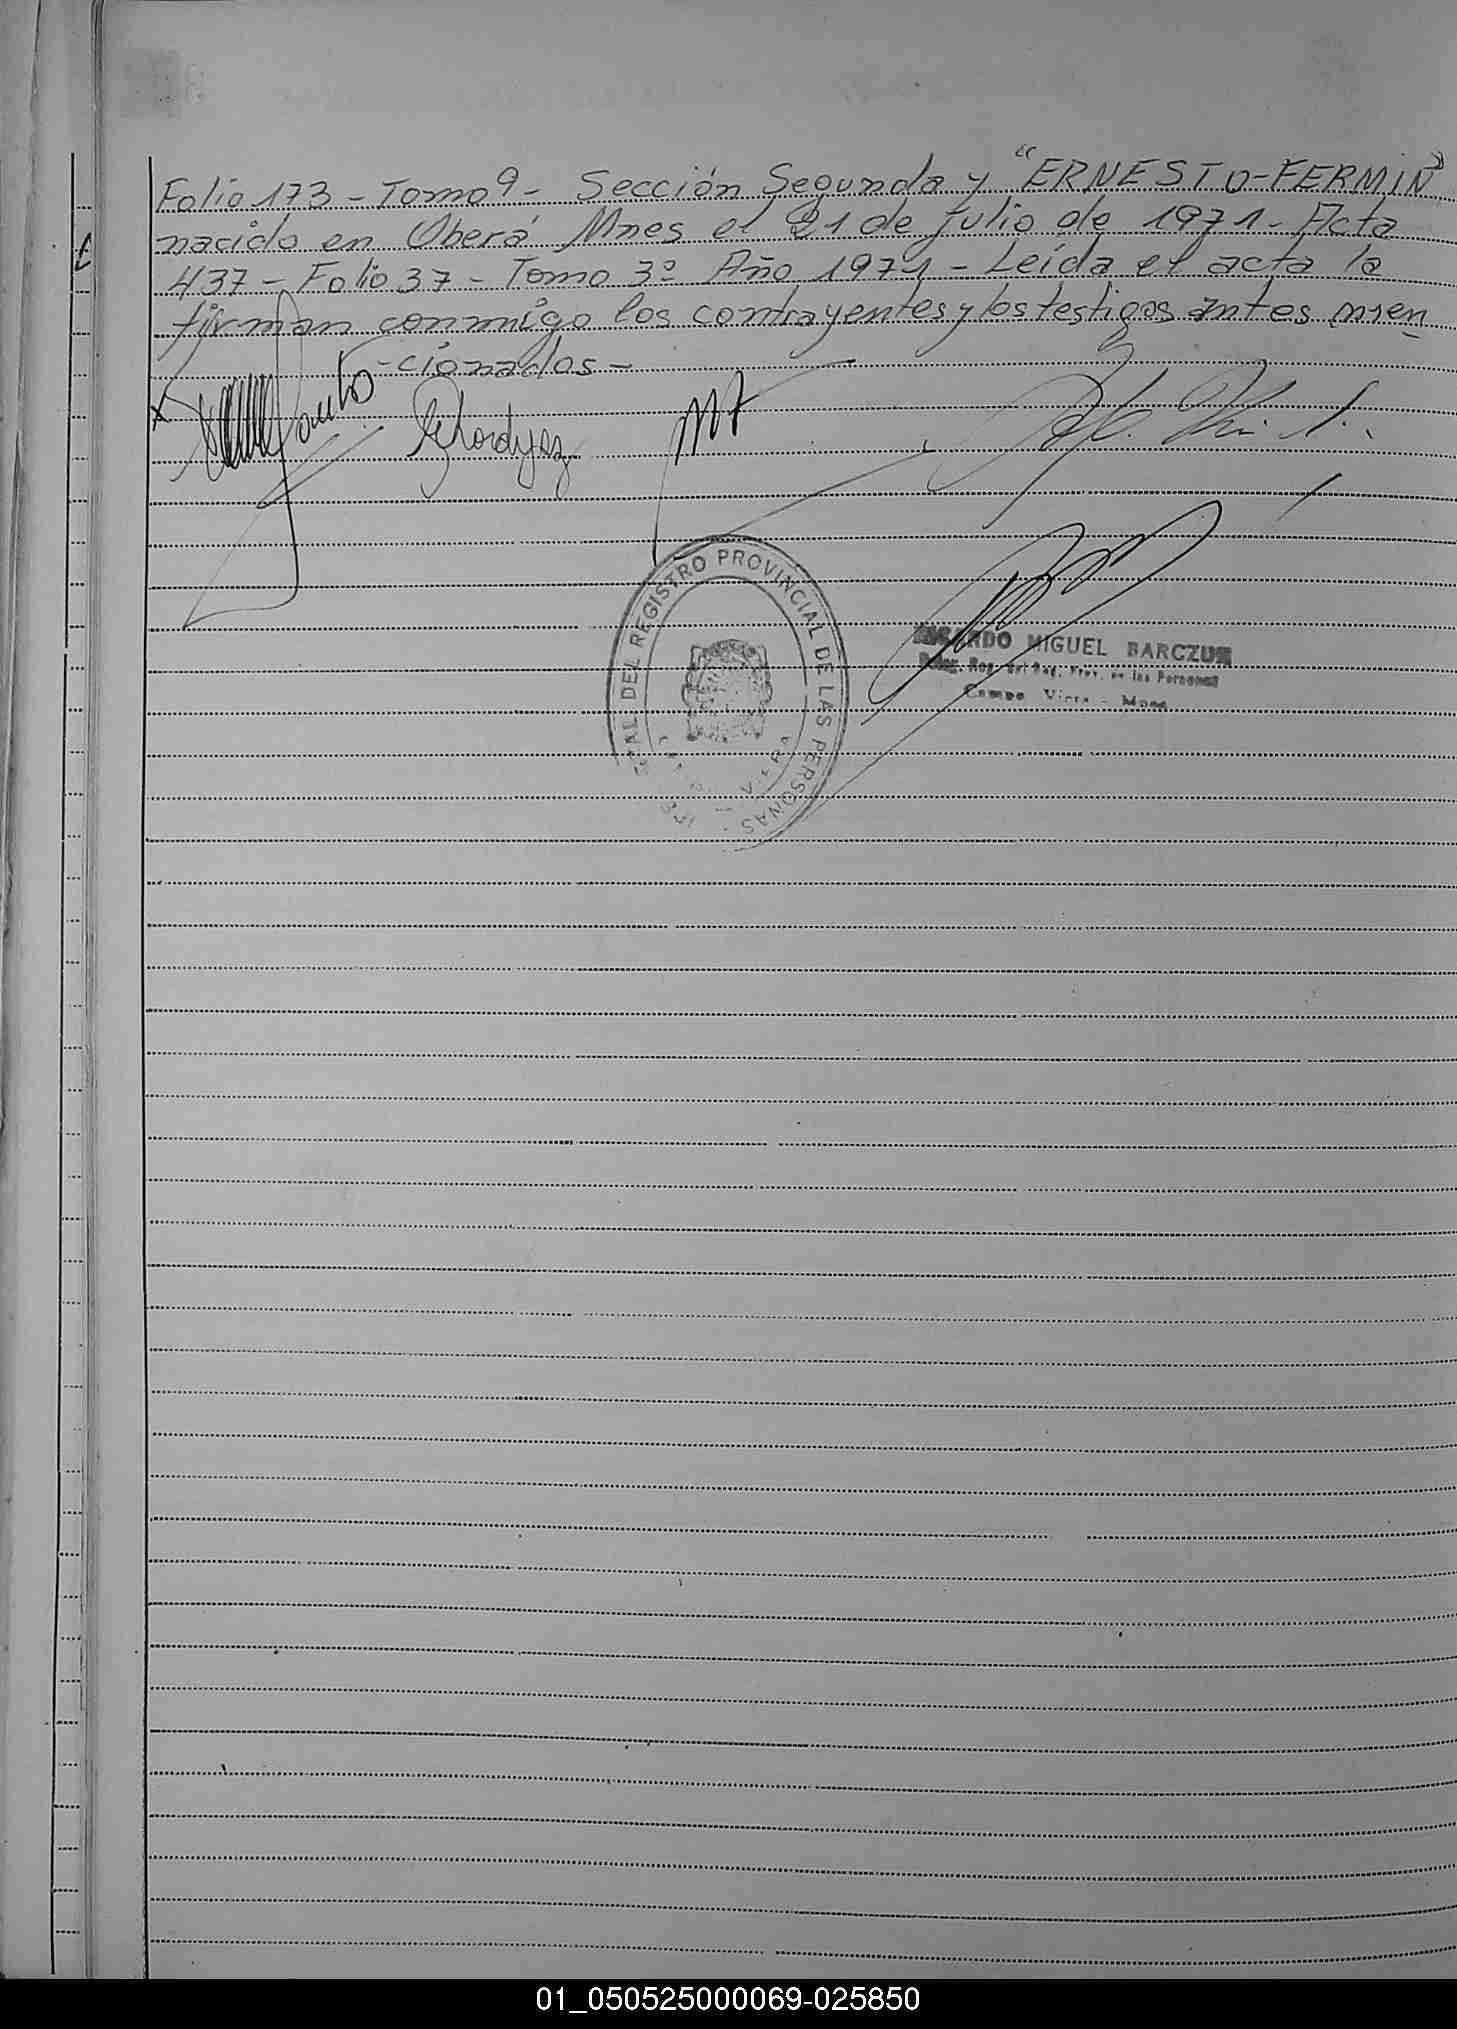 Folio 173 - Tomo 9 - Sección Segunda y "ERNESTO-FERMIN"
nacido en Oberá Mnes el 21 de julio de 1971 - Acta
437 - Folio 37 - Tomo 3º Año 1971 - Leída el acta la
firman conmigo los contrayentes y los testigos antes men
-cionados-
DEL REGISTRO PROVINCIAL DE LAS PERSONAS
MIGUEL BARCZUK
Deleg. Reg. del Reg. Prov. de las Personas
Campo Viera - Mnes
01_050525000069-025850